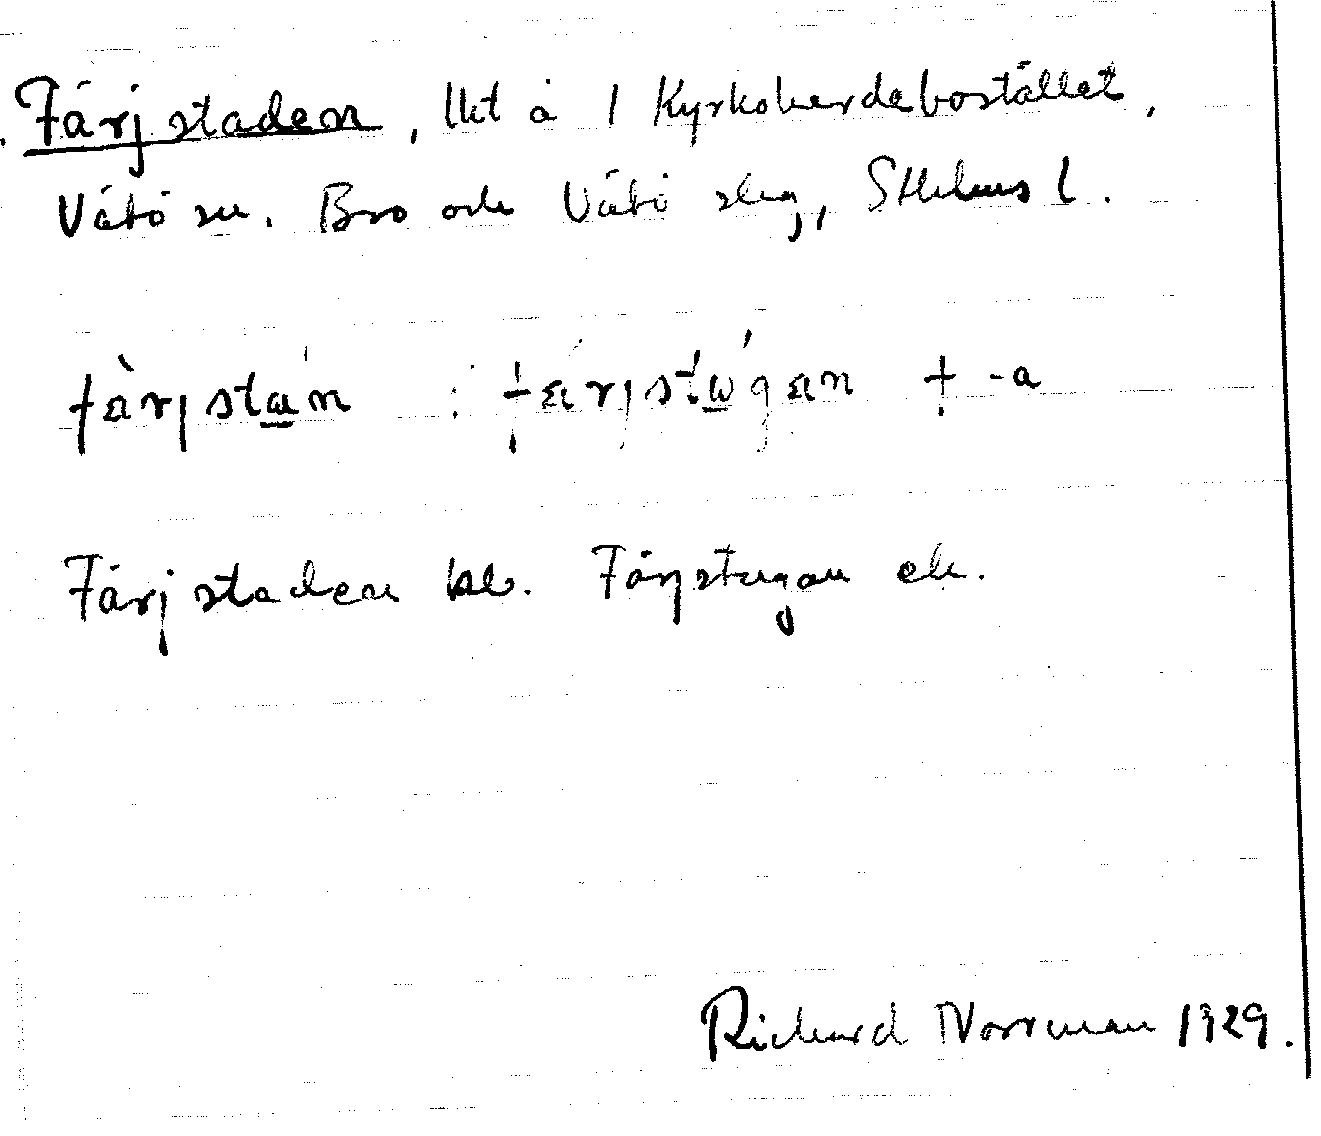 Färjstaden, lht å 1 Kyrkoherdebostället,
Vätö sn. Bro och Vätö slg, Sthlms l.
färjsta'n : färjstugan + -a
Färjstaden kl. Färjstugan ek.
Richard Norrman 1929.